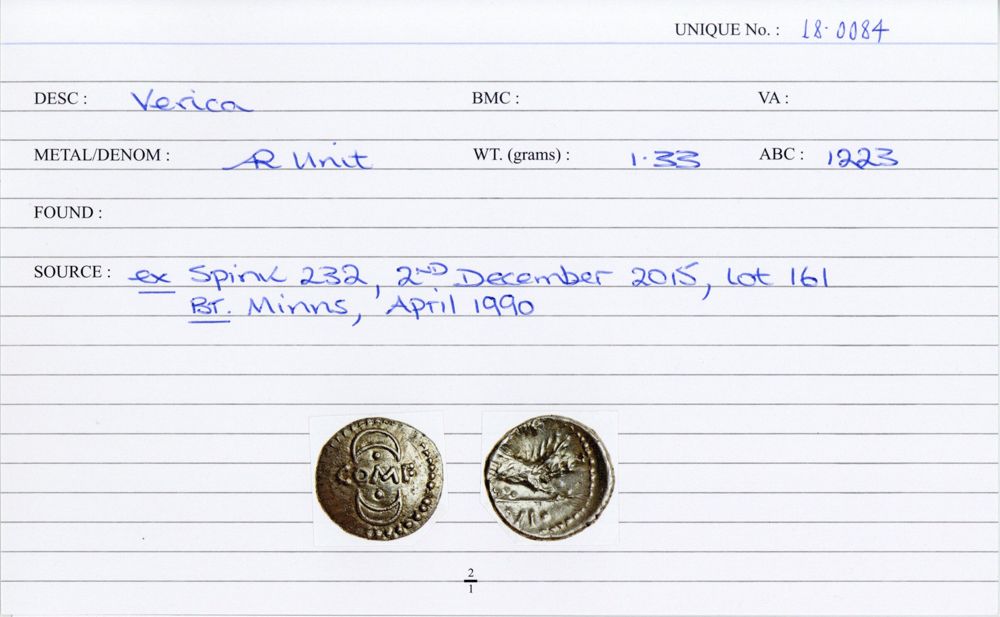 UNIQUE No. : 18·0084
DESC : Verica BMC : VA :
METAL/DENOM : AR Unit WT. (grams) : 1·33 ABC : 1223
FOUND :
SOURCE : ex Spink 232, 2ND December 2015, lot 161
BT. Minns, April 1990
COMF
2
1